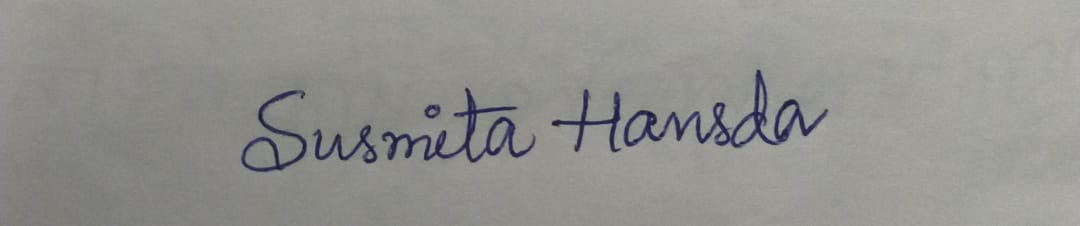 Susmita Hansda